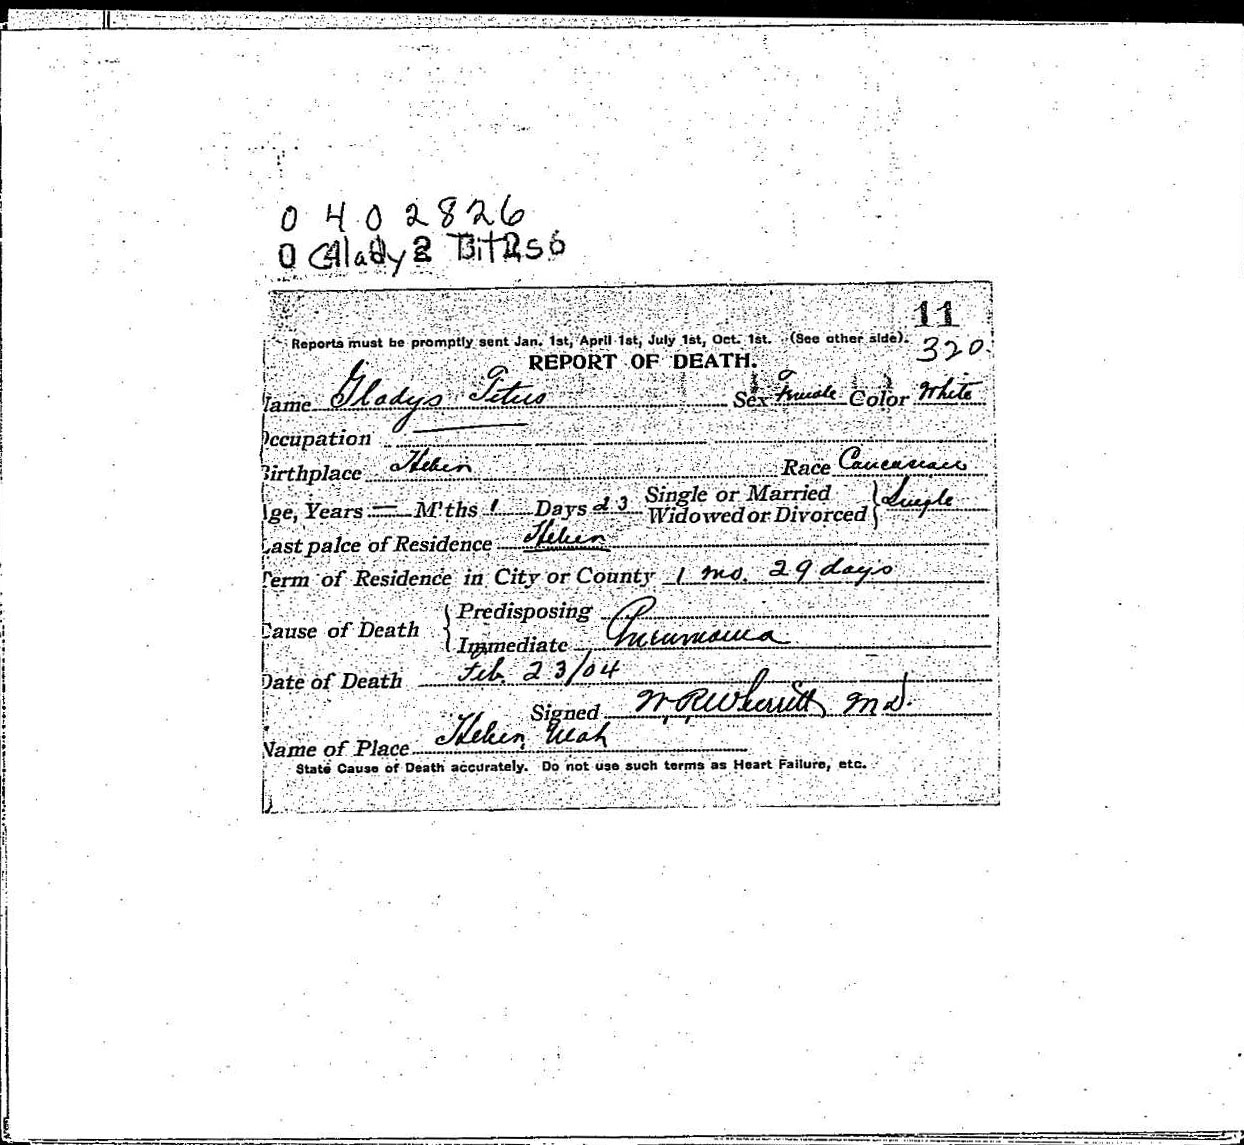 0 4 0 2 8 2 6
11
Reports must be promptly sent Jan. 1st, April 1st, July 1st, Oct. 1st. (See other side).
320.
REPORT OF DEATH.
Name Gladys Titus Sex Female Color White
Occupation
Birthplace Heber Race Caucasian
Age, Years — M'ths 1 Days 23 Single or Married Widowed or Divorced } Single
Last palce of Residence Heber
Term of Residence in City or County 1 mo. 29 days
Cause of Death { Predisposing
Immediate Pneumonia
Date of Death Feb. 23/04
Signed W R Wherritt M D.
Name of Place Heber, Utah
State Cause of Death accurately. Do not use such terms as Heart Failure, etc.